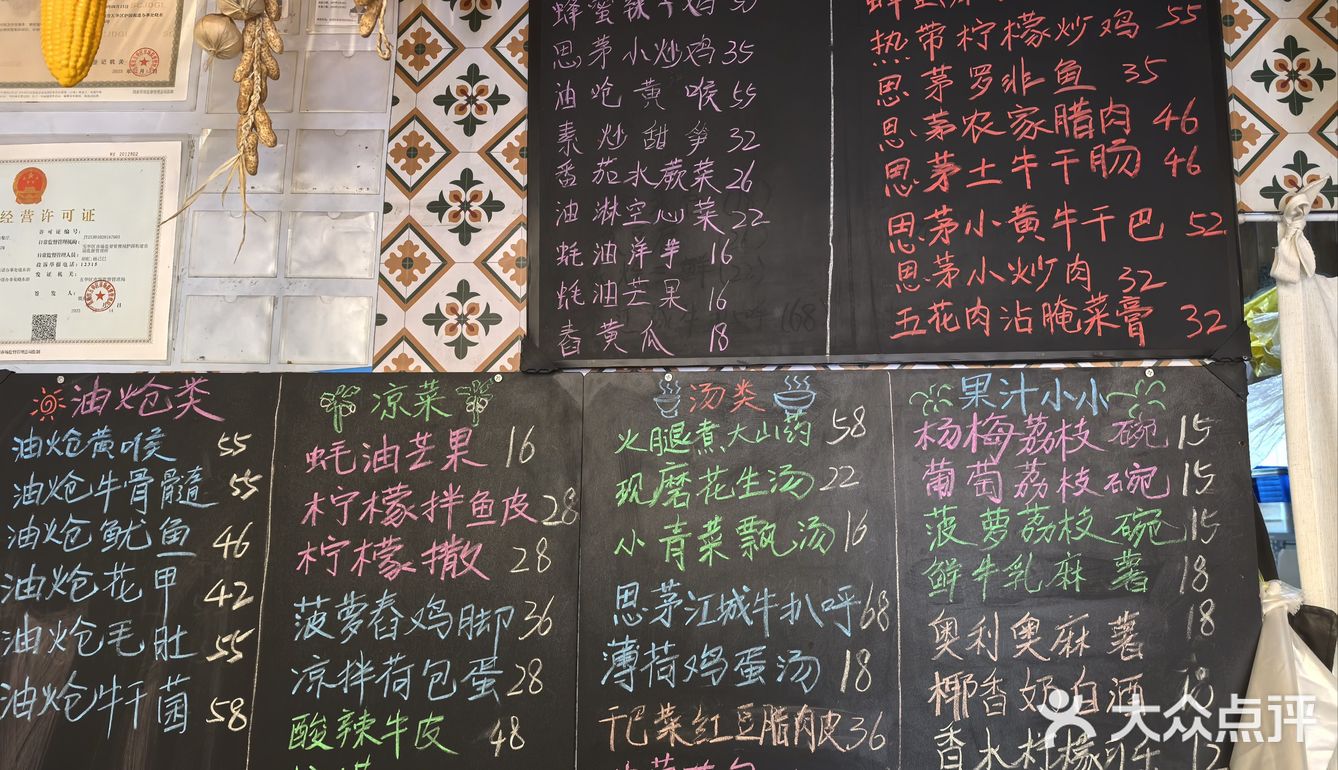 思茅小炒鸡 35
油炝黄喉 55
素炒甜笋 32
番茄水蕨菜 26
油淋空心菜 22
蚝油洋芋 16
蚝油芒果 16
舂黄瓜 18
热带柠檬炒鸡 55
思茅罗非鱼 35
思茅农家腊肉 46
思茅土牛干肠 46
思茅小黄牛干巴 52
思茅小炒肉 32
五花肉沾腌菜膏 32
经营许可证
许可证编号:
日常监督管理机构:
日常监督管理人员:
投诉举报电话: 12315
发证机关:
签发人:
油炝类
油炝黄喉 55
油炝牛骨髓 55
油炝鱿鱼 46
油炝花甲 42
油炝毛肚 55
油炝牛干菌 58
凉菜
蚝油芒果 16
柠檬拌鱼皮 28
柠檬撒 28
菠萝舂鸡脚 36
凉拌荷包蛋 28
酸辣牛皮 48
汤类
火腿煮大山药 58
现磨花生汤 22
小青菜飘汤 16
思茅江城牛扒呼 68
薄荷鸡蛋汤 18
干巴菜红豆腊肉皮 36
果汁小小
杨梅荔枝碗 15
葡萄荔枝碗 15
菠萝荔枝碗 15
鲜牛乳麻薯 18
奥利奥麻薯 18
椰香奶白酒
香水柠檬
大众点评